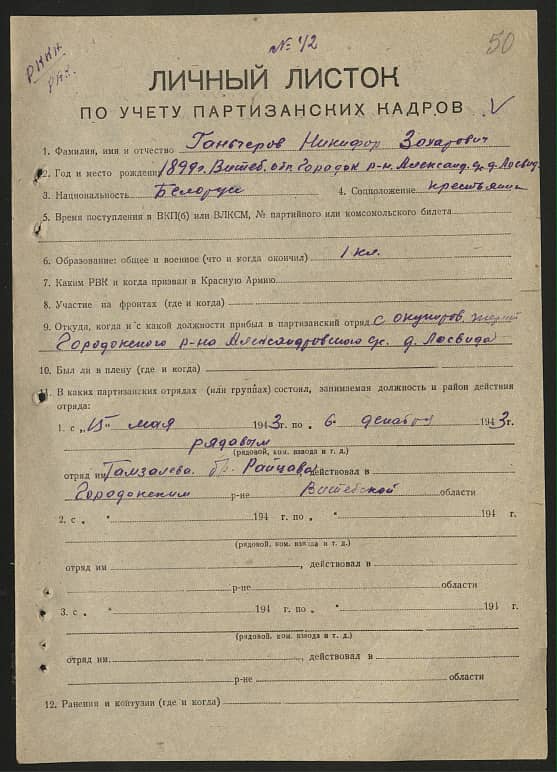 № 42
50
РККА
ЛИЧНЫЙ ЛИСТОК
ПО УЧЕТУ ПАРТИЗАНСКИХ КАДРОВ
1. Фамилия, имя и отчество Никифор Захарович
2. Год и место рождения 1899 г. Витеб. обл. Городок. р-н. Александ. с/с д. Лосвид.
3. Национальность Белорус 4. Соцположение крестьянин
5. Время поступления в ВКП(б) или ВЛКСМ, № партийного или комсомольского билета
6. Образование: общее и военное (что и когда окончил) 1 кл.
7. Каким РВК и когда призван в Красную Армию
8. Участие на фронтах (где и когда)
9. Откуда, когда и с какой должности прибыл в партизанский отряд с
Городокского р-на Александровского с/с. д. Лосвида
10. Был ли в плену (где и когда)
11. В каких партизанских отрядах (или группах) состоял, занимаемая должность и район действия
отряда:
1. с „15" мая 1943 г. по „6" декабря 1943 г.
рядовым
(рядовой, ком. взвода и т. д.)
отряд им. бр. Райцева, действовал в
Городокском р-не Витебской области
2. с „ " 194 г. по „ " 194 г.
(рядовой, ком. взвода и т. д.)
отряд им. , действовал в
р-не области
3. с „ " 194 г. по „ " 194 г.
(рядовой, ком. взвода и т. д.)
отряд им. , действовал в
р-не области
12. Ранения и контузии (где и когда)